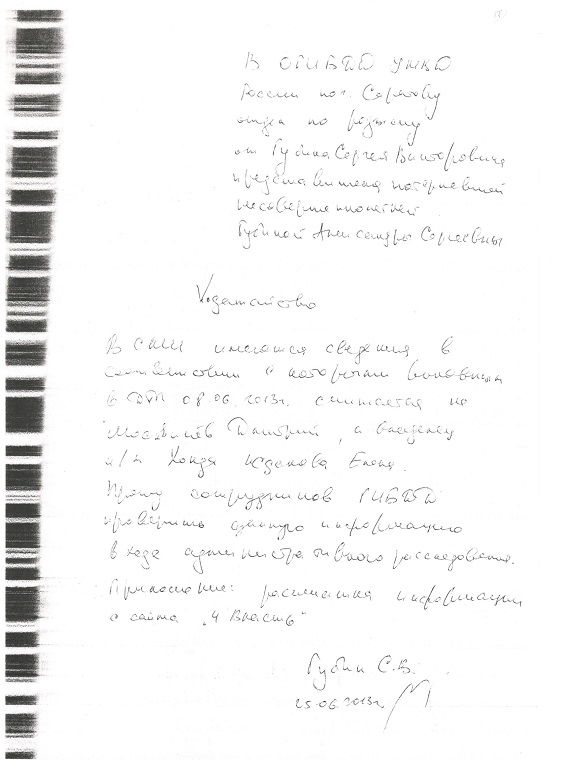 В ОГИБДД УМВД
России по г. Саратову
отдел по розыску
от Губина Сергея Викторовича
представителя потерпевшей
несовершеннолетней
Губиной Александры Сергеевны
Ходатайство
В СМИ имеются сведения, в
соответствии с которыми виновным
в ДТП 08.06.2013г. считается не
Дмитрий, а владелец
а/м Хонда Елена.
Прошу сотрудников ГИБДД
проверить данную информацию
в ходе административного расследования.
Приложение: распечатка информации
с сайта „4 Власть"
Губин С.В.
25.06.2013г.